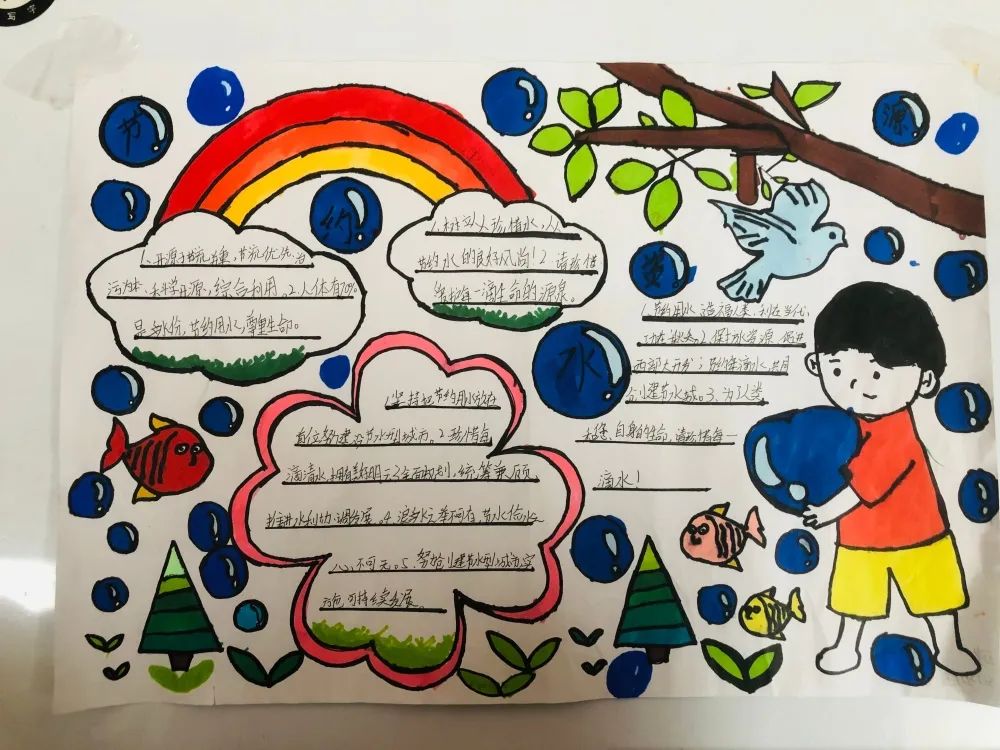 写字
节
约
水
资
源
1、开源节流并重,节流优先,治
污为本,科学开源,综合利用。2.人体有70%
是水份,节约用水,尊重生命。
1.树立人人珍惜水,人人
节约水的良好风尚!2.请珍惜
每一滴生命的源泉。
1.坚持把节约用水放在
首位努力建设节水型城市。2.珍惜每
滴清水,拥有美好明天。3.全面规划,统筹兼顾
推进水利协调发展。4.浪费水之举不可有,节水俭水
心不可无。5.努力创建节水型城市实
施可持续发展。
1.节约用水 造福人类,利在当代,
功在千秋。2.保护水资源 促进
西部大开发;节约每滴水,共同
创建节水城。3.为人类
自身的生命,请珍惜每一
滴水!